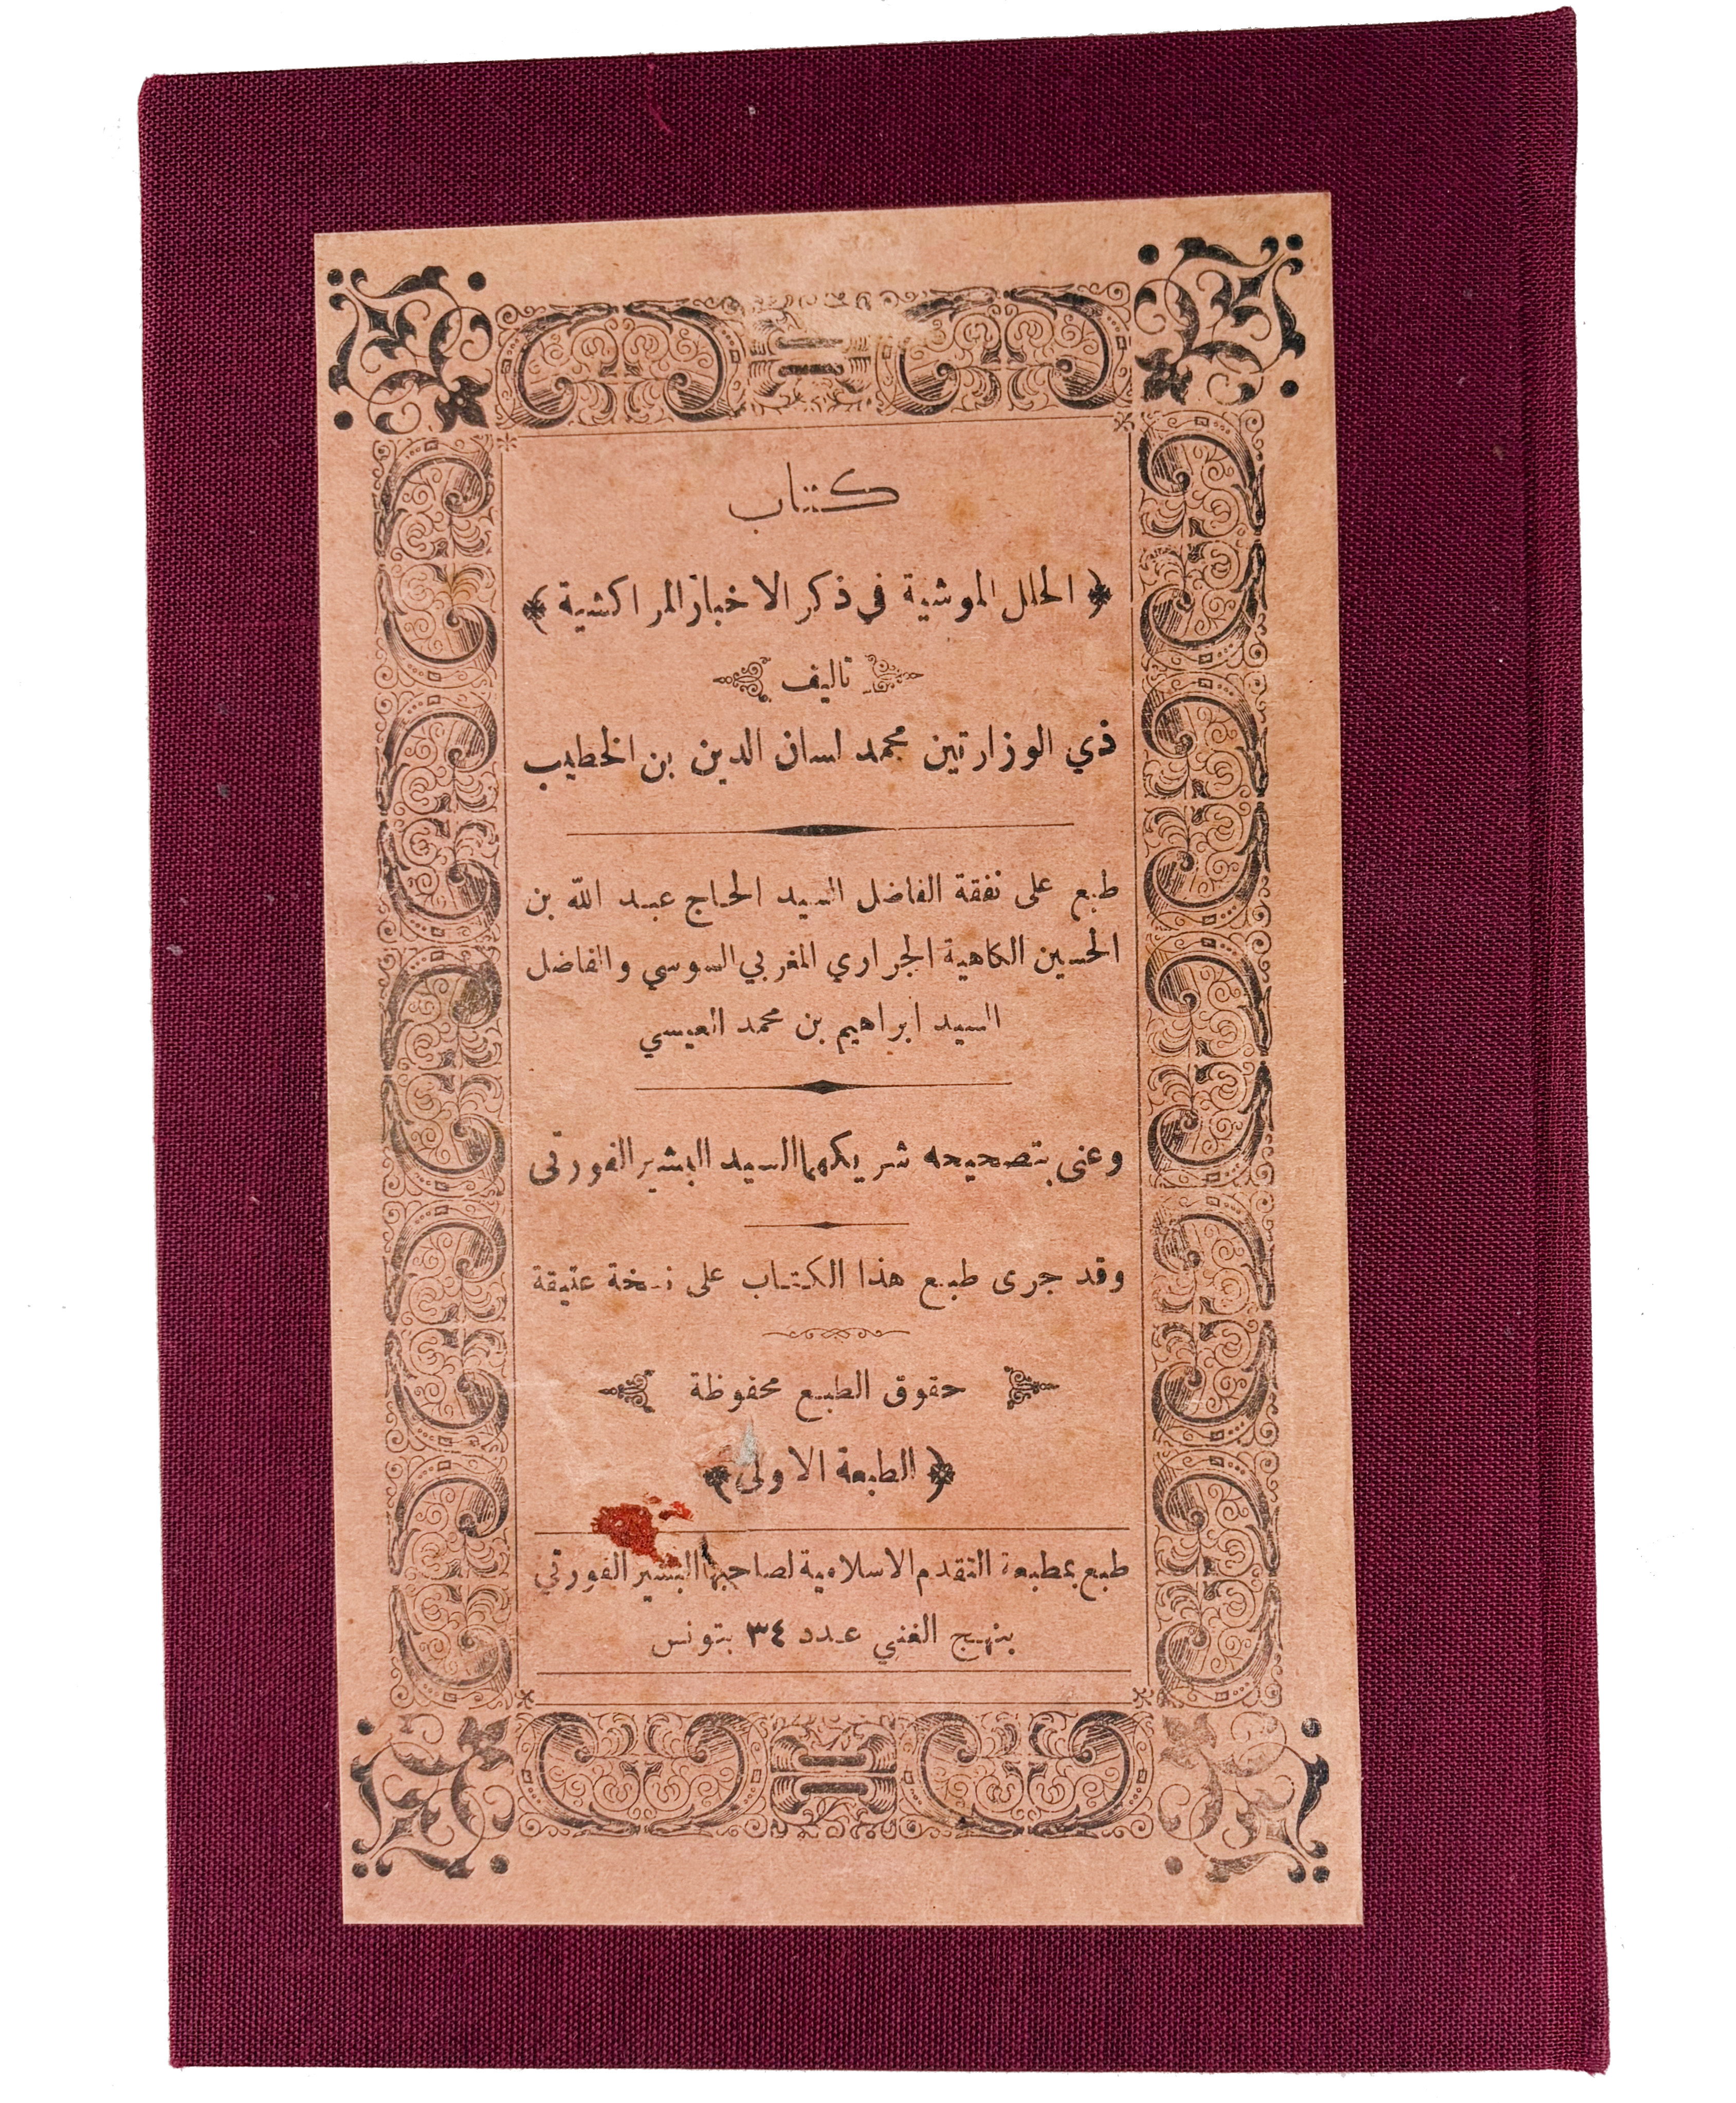 كتاب
﴿ الحلل الموشية في ذكر الاخبار المراكشية ﴾
تاليف
ذي الوزارتين محمد لسان الدين بن الخطيب
طبع على نفقة الفاضل السيد الحاج عبد الله بن
الحسين الكاهية الجراري المغربي السوسي والفاضل
السيد ابراهيم بن محمد العيسي
وعنى بتصحيحه شريكهما السيد البشير الفورتى
وقد جرى طبع هذا الكتاب على نسخة عتيقة
حقوق الطبع محفوظة
﴿ الطبعة الاولى ﴾
طبع بمطبعة التقدم الاسلامية لصاحبها البشير الفورتي
بنهج الغني عدد ٣٤ بتونس